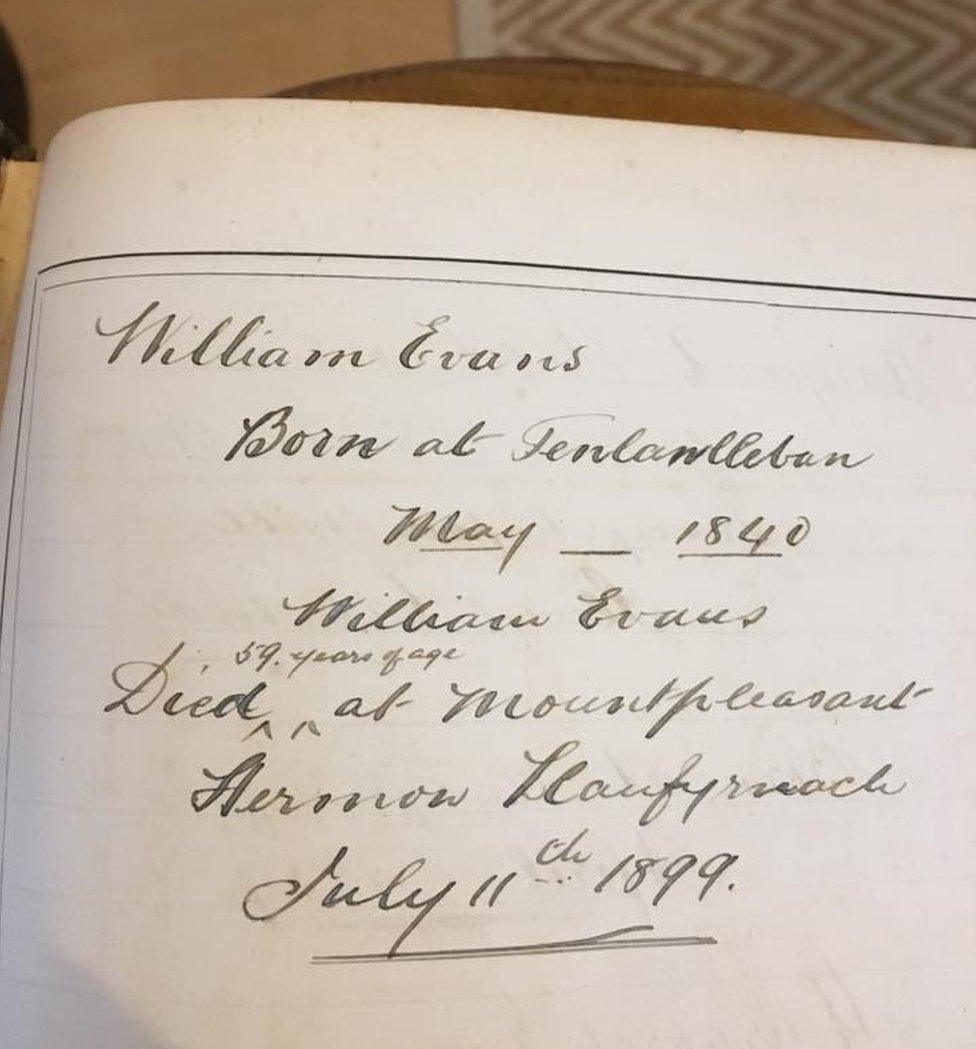 William Evans
Born at Fenlanlleban
May — 1840
William Evans
59. years of age
Died at Mountpleasant
Hermon Llanfyrnach
July 11th 1899.